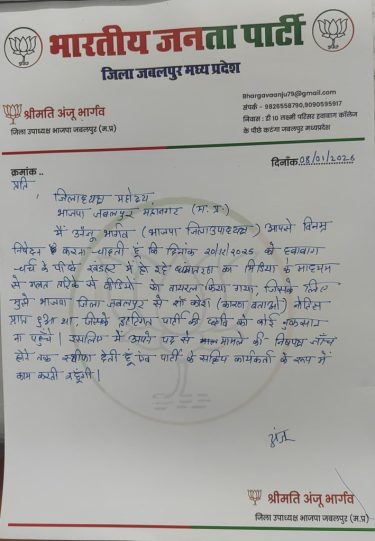 भारतीय जनता पार्टी
जिला जबलपुर मध्य प्रदेश
श्रीमति अंजू भार्गव
जिला उपाध्यक्ष भाजपा जबलपुर (म.प्र)
Bhargavaanju79@gmail.com
संपर्क - 9826558790,9090595917
निवास : डी 10 लक्ष्मी परिसर हवाबाग कॉलेज
के पीछे कटंगा जबलपुर मध्यप्रदेश
क्रमांक ..
दिनांक 08/01/2026
प्रति
जिलाध्यक्ष महोदय
भाजपा जबलपुर महानगर (म. प्र.)
मैं अंजू भार्गव (भाजपा जिलाउपाध्यक्ष) आपसे विनम्र
निवेदन करना चाहती हूँ कि दिनांक 20/12/2025 को हवाबाग
चर्च के पीछे खंडहर में हो रहे धर्मांतरण का मिडिया के माध्यम
से गलत तरिके से वीडियो को वायरल किया गया, जिसके लिए
मुझे भाजपा जिला जबलपुर से शो कॉश (कारण बताओ) नोटिस
प्राप्त हुआ था, जिसके पार्टी की छवि को कोई नुकसान
ना पहुँचे। इसलिए मैं अपने पद से मामले की निष्पक्ष जाँच
होने तक स्तीफा देती हूँ एवं पार्टी के सक्रिय कार्यकर्ता के रूप में
काम करती रहूँगी।
अंजू
श्रीमति अंजू भार्गव
जिला उपाध्यक्ष भाजपा जबलपुर (म.प्र)